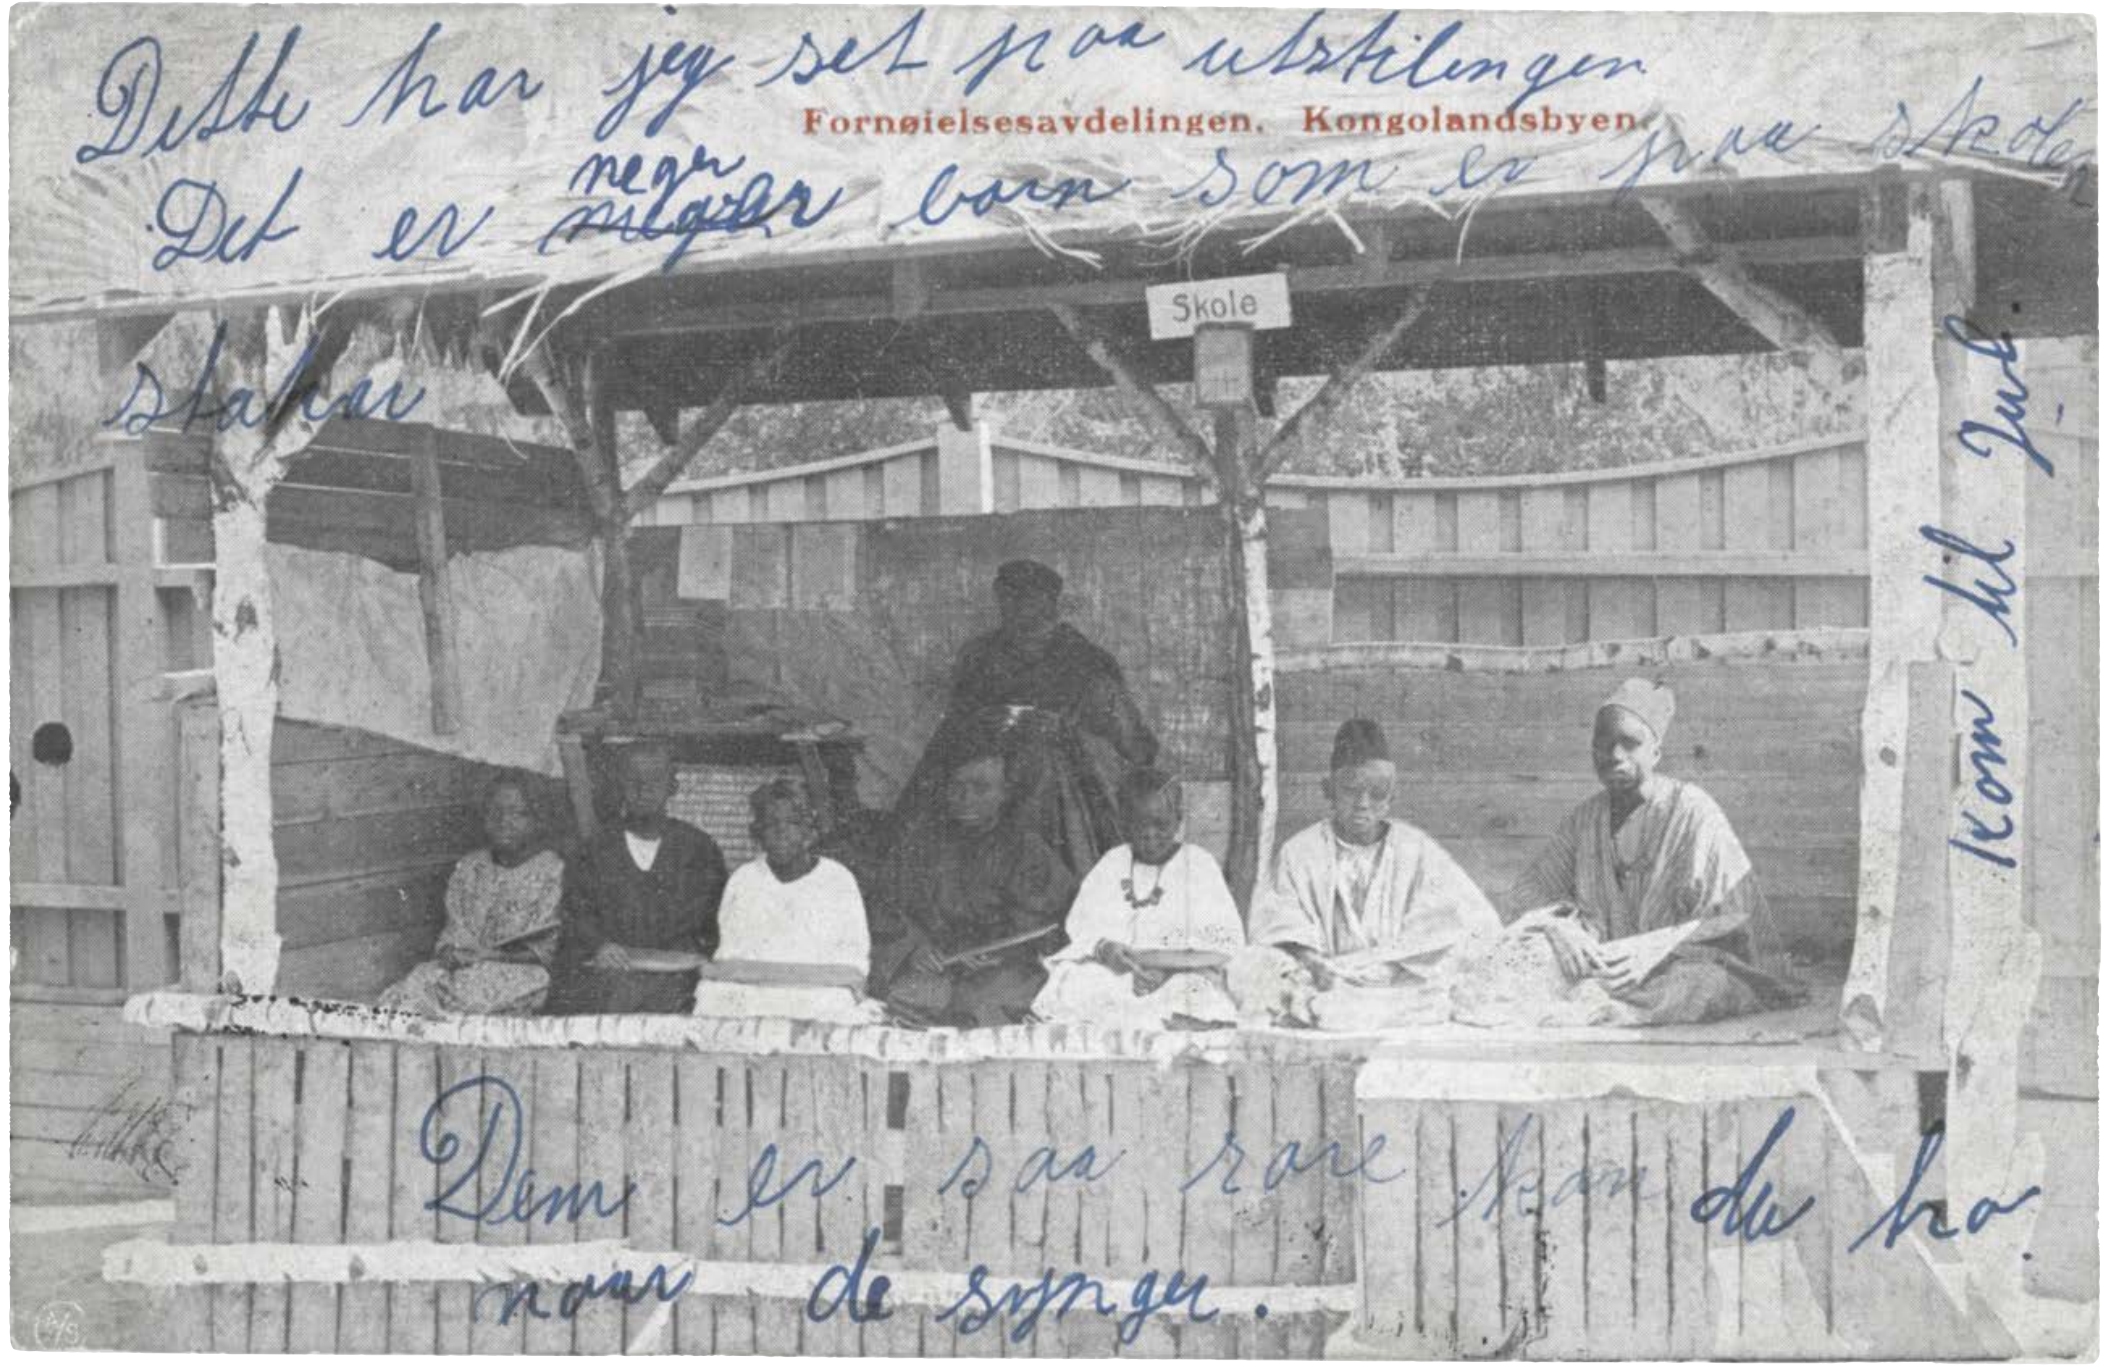 Dette har jeg set paa utstilingen
Fornøielsesavdelingen. Kongolandsbyen.
neger
Det er neger born som er paa skolen
stakar
Skole
kom til Jul.
Dem er saa rare kan du tro
naar de synger.